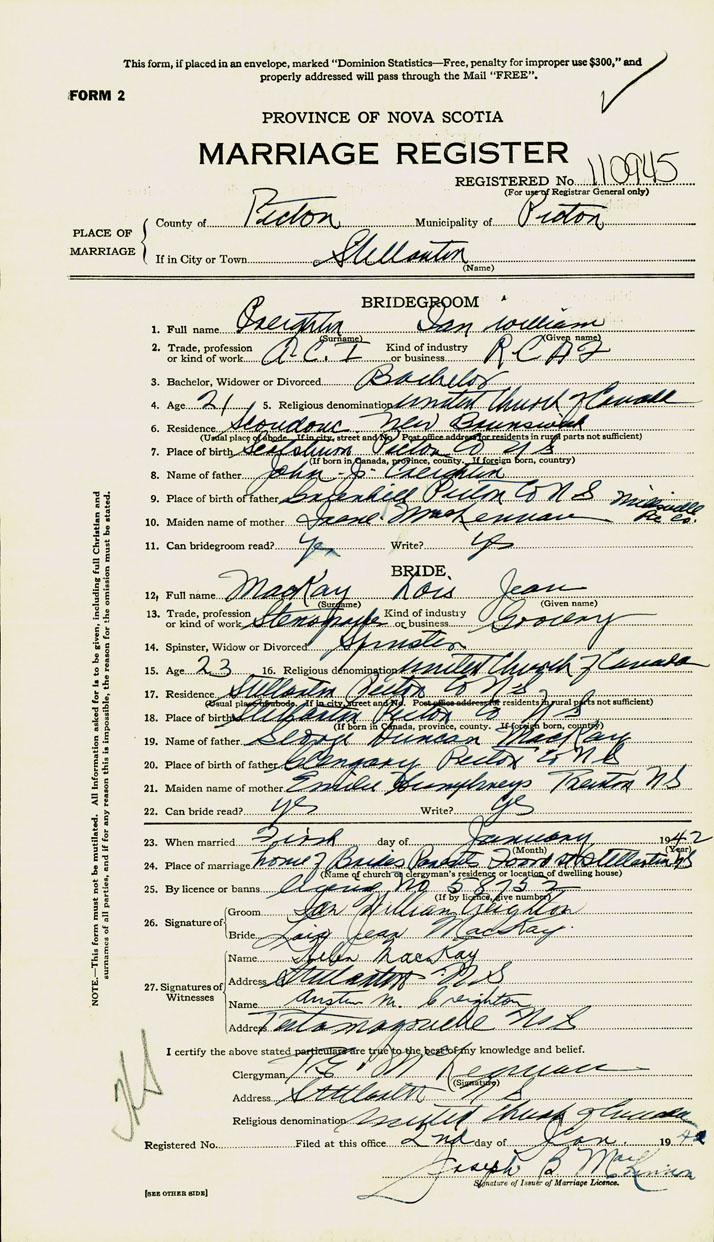 This form, if placed in an envelope, marked "Dominion Statistics—Free, penalty for improper use $300," and
properly addressed will pass through the Mail "FREE".
FORM 2
PROVINCE OF NOVA SCOTIA
MARRIAGE REGISTER
REGISTERED No. 110945
(For use of Registrar General only)
PLACE OF MARRIAGE
County of Pictou Municipality of Pictou
If in City or Town Stellarton
(Name)
BRIDEGROOM
1. Full name Creighton Ian William
(Surname) (Given name)
2. Trade, profession or kind of work A.C.I Kind of industry or business R C A F
3. Bachelor, Widower or Divorced Bachelor
4. Age 21 5. Religious denomination United Church of Canada
6. Residence Scoudouc New Brunswick
(Usual place of abode. If in city, street and No. Post office address for residents in rural parts not sufficient)
7. Place of birth Pictou Co N S
(If born in Canada, province, county. If foreign born, country)
8. Name of father John Creighton
9. Place of birth of father Greenhill Pictou Co N S
10. Maiden name of mother MacLennan
11. Can bridegroom read? Yes Write? Yes
BRIDE
12. Full name MacKay Lois Jean
(Surname) (Given name)
13. Trade, profession or kind of work Stenographer Kind of industry or business Grocery
14. Spinster, Widow or Divorced Spinster
15. Age 23 16. Religious denomination United Church of Canada
17. Residence Stellarton Pictou Co N S
(Usual place of abode. If in city, street and No. Post office address for residents in rural parts not sufficient)
18. Place of birth Stellarton Pictou Co N S
(If born in Canada, province, county. If foreign born, country)
19. Name of father George Duncan MacKay
20. Place of birth of father Glengarry Pictou Co N S
21. Maiden name of mother Emilie Humphreys Trenton N S
22. Can bride read? Yes Write? Yes
23. When married First day of January 1942
(Month) (Year)
24. Place of marriage home of Brides Parents Stellarton NS
(Name of church or clergyman's residence or location of dwelling house)
25. By licence or banns License No 58752
(If by licence, give number)
26. Signature of
Groom Ian William Creighton
Bride Lois Jean MacKay.
27. Signatures of Witnesses
Name Helen MacKay
Address Stellarton N S
Name Austin M. Creighton
Address Tatamagouche N S
I certify the above stated particulars are true to the best of my knowledge and belief.
Clergyman
(Signature)
Address Stellarton N S
Religious denomination United Church of Canada
Registered No. Filed at this office 2nd day of Jan. 1942
Joseph B Mac
Signature of Issuer of Marriage Licence.
[SEE OTHER SIDE]
NOTE.—This form must not be mutilated. All Information asked for is to be given, including full Christian and
surnames of all parties, and if for any reason this is impossible, the reason for the omission must be stated.